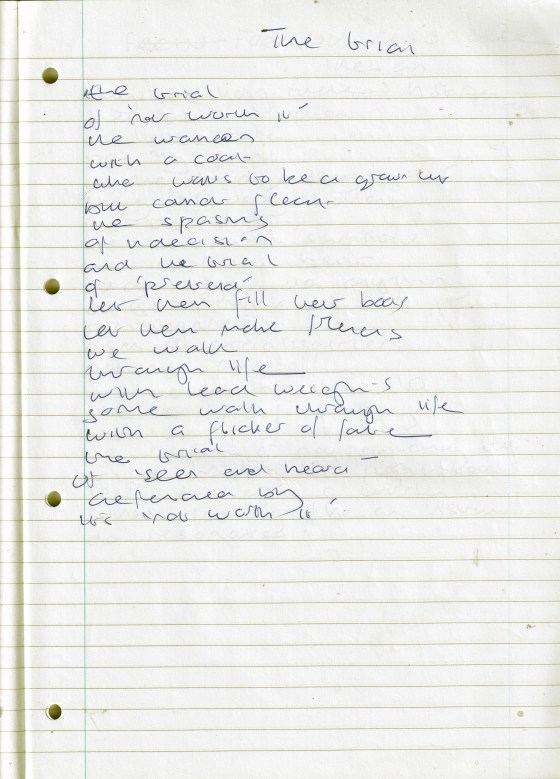 The trial
the trial
of 'not worth it'
the
with a coat
who wants to be a grown up
but cannot
the spasms
of indecision
and the trial
of 'pretend'
let them fill their body
let them make
we walk
through life
with lead weights
some walk through life
with a flicker of
the trial
of 'seen and heard'
by
its 'not worth it'